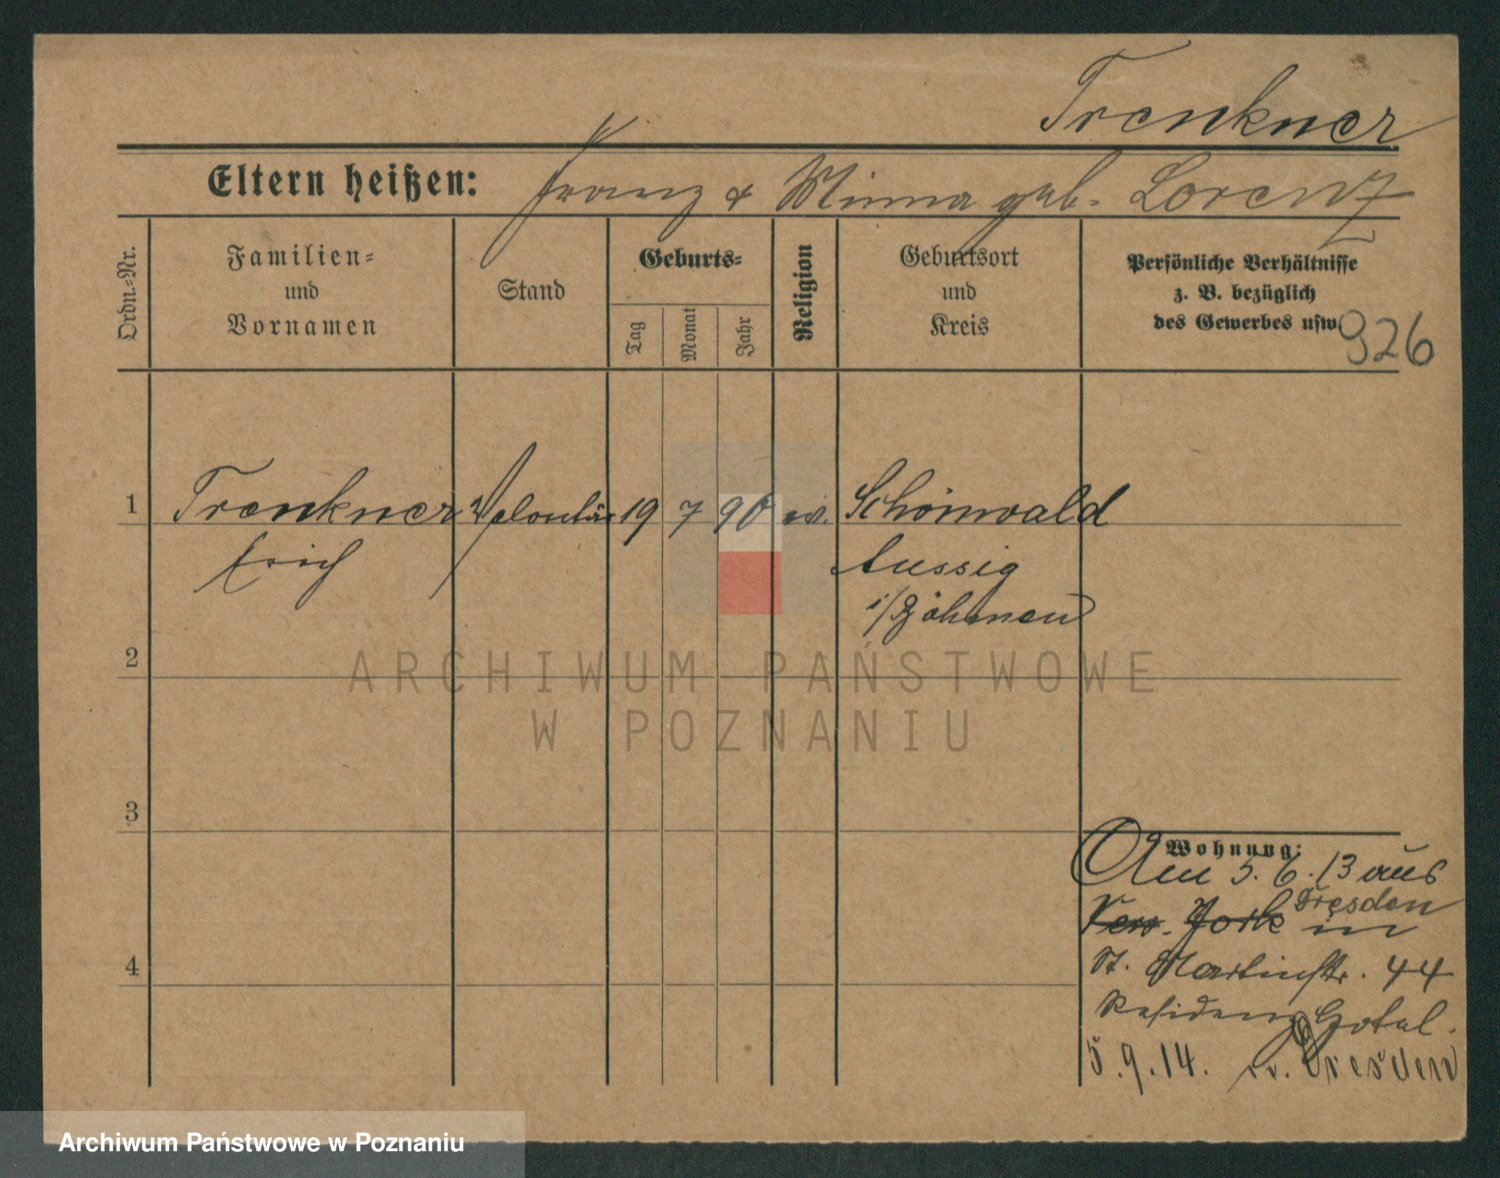 Trenkner
Eltern heißen: Franz & Minna geb. Lorenz
Ordn.=Nr.
Familien=
und
Vornamen
Stand
Geburts=
Tag
Monat
Jahr
Religion
Geburtsort
und
Kreis
Persönliche Verhältnisse
z. B. bezüglich
des Gewerbes usw.
926
1 Trenkner Volontär 19 7 90 ev. Schönwald
Erich Aussig
i/Böhmen
2
3
4
Wohnung:
Am 5. 6. 13 aus
Dresden
New-York in
St. Martinstr. 44
Residenz Hotel.
5. 9. 14. n. Dresden
ARCHIWUM PAŃSTWOWE
W POZNANIU
Archiwum Państwowe w Poznaniu